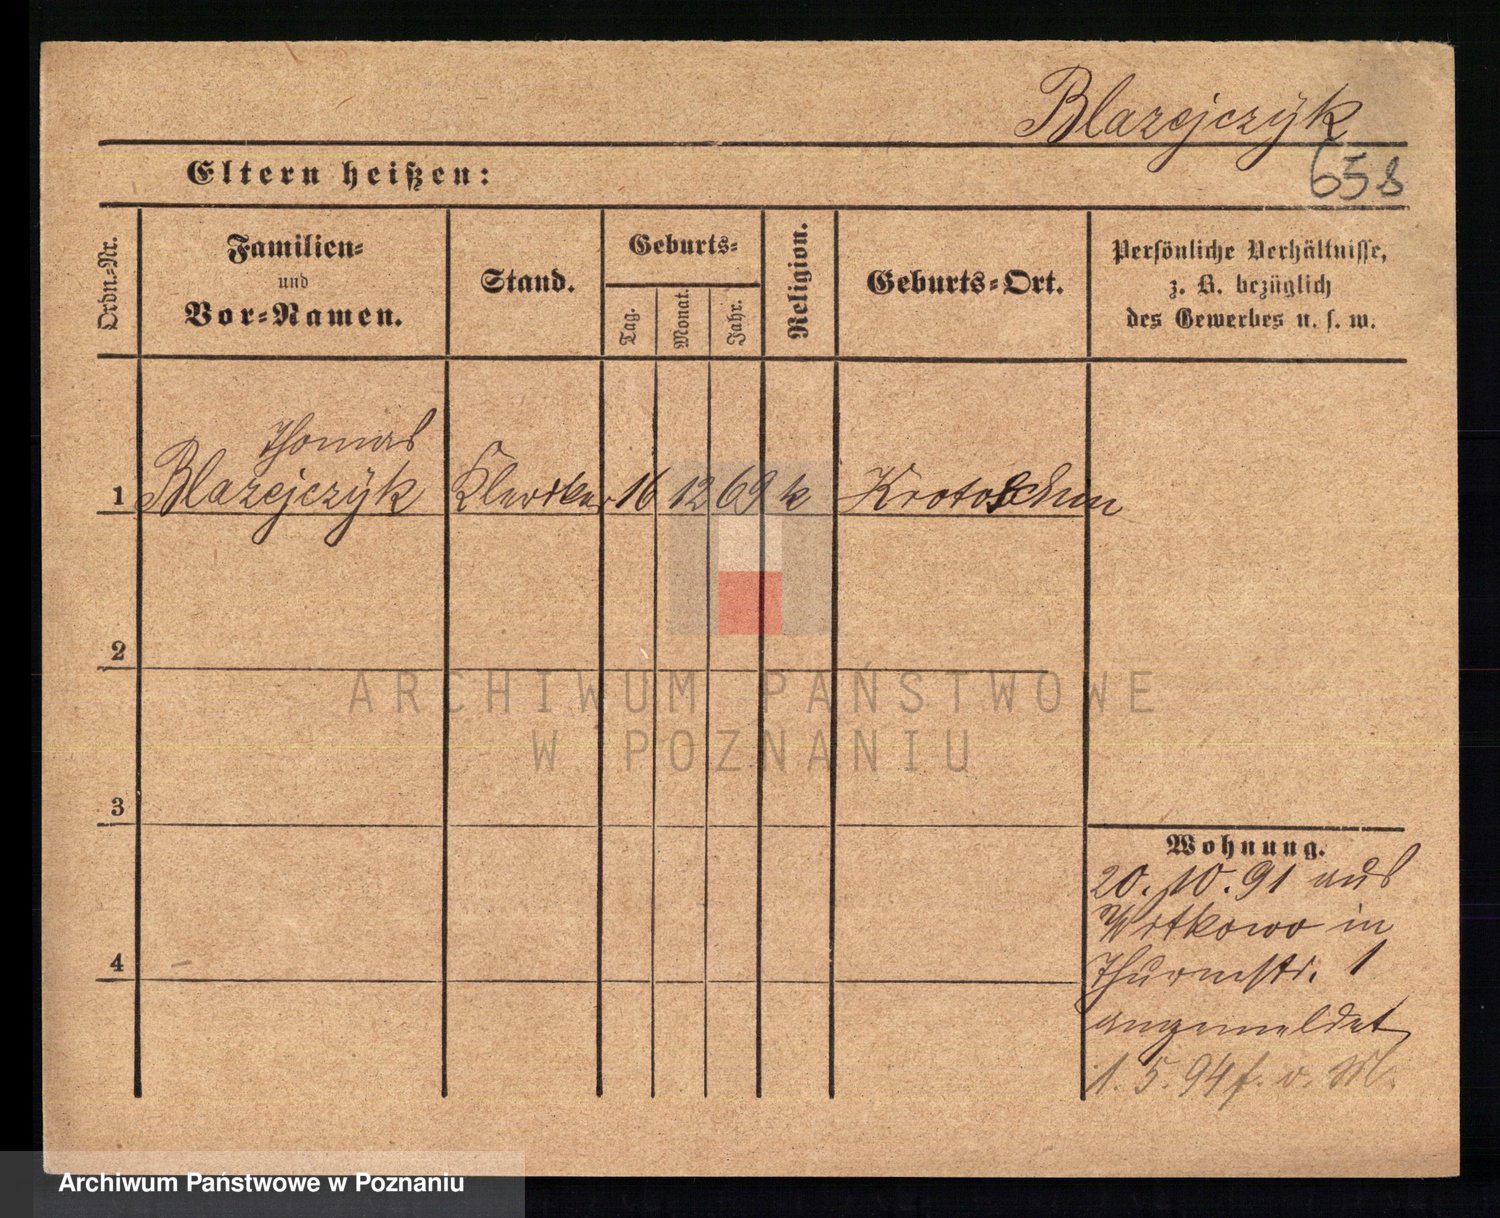 Blazejczÿk
658
Eltern heißen:
Ordn.-Nr.
Familien-
und
Vor-Namen.
Stand.
Geburts-
Tag.
Monat.
Jahr.
Religion.
Geburts-Ort.
Persönliche Verhältnisse,
z. B. bezüglich
des Gewerbes u. s. w.
Thomas
1 Blazejczÿk Kleriker 16 12 69 k Krotoschin
2
ARCHIWUM PAŃSTWOWE
W POZNANIU
3
Wohnung.
20. 10. 91 aus
Witkowo in
Thurmstr. 1
4
angemeldet
1. 5. 94 f. v. M.
Archiwum Państwowe w Poznaniu